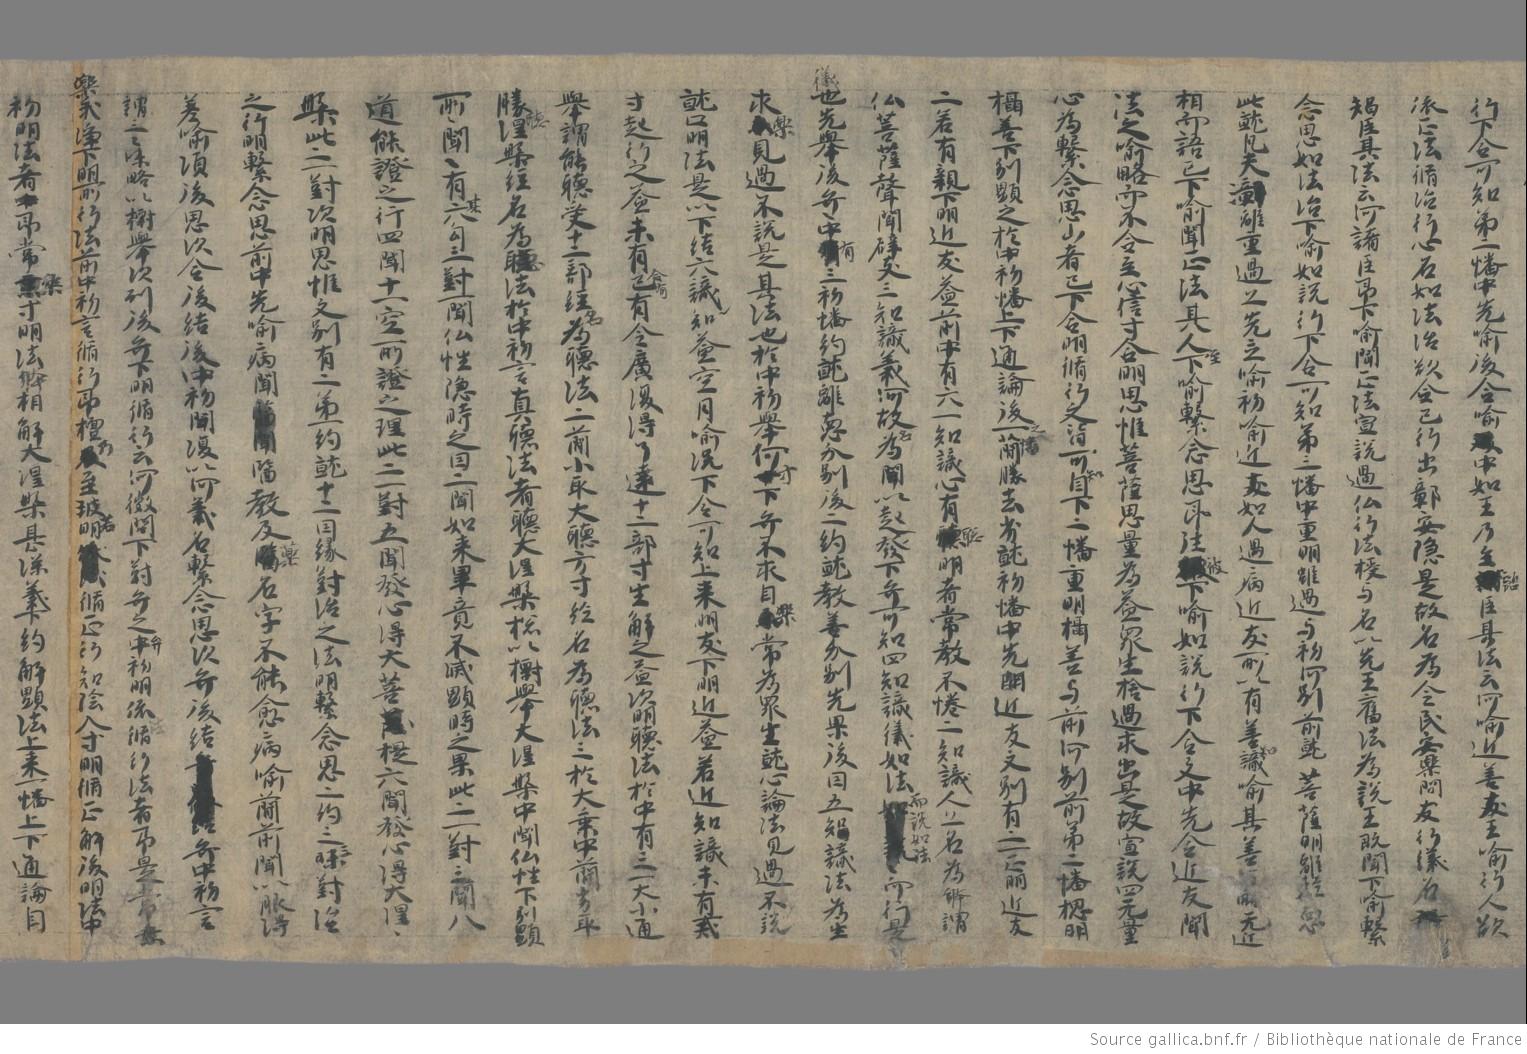 行下合可知第二幡中先喻後合喻中如王乃至詔臣其法云何喻近善友王喻行人欲
依正法脩治行心名如法治欲合已行出鄣安隱是故名為令民安樂問友行儀名
知臣其法云何諸臣耶下喻聞正法宣說過仏行法授与名以先王舊法為說王既聞下喻繫
念思如法治下喻如說行下合可知第三幡中重明雖過与初何別前就菩薩明離
此就凡夫離重過以先立喻初喻近友如人過病近友所以有善識喻其善無近
相而語已下喻聞正法其人至下喻繫念思耶彼下喻如說行下合之中先合近友聞
法之喻略而不合至心信寸合明思惟菩薩思量為益眾生捨過求出是故宣說四无量
心為繫念思山者已下合明脩行之諸可知自下二幡重明攝善与前何別前第二幡揔明
攝善下別顯之於中初幡上下通論後一簡勝去劣就初幡中先開近友文別有二一正明近友
二若有親下明近友益前中有六一知識心有聽明者常教不惓二知識人以名為所謂
仏菩薩聲聞辟支三知識義何故名為聞以起發下弁可知四知識儀如法而說如法而行是
儀也先舉後弁中有三初幡約就離惡分別後一約就教善分別先果後因五知識法為生
求樂見過不說是其法也於中初舉何寸下弁不求自樂常為眾生就心論法見過不說
就口明法是以下結六識知益空月喻況下合可知上来明友下明近益若近知識未有戒
寸起行之益未有已有令廣復得了達十二部寸生解之益次明聽法於中有三一大小通
舉謂能聽受十二部經名為聽法二簡小取大聽方寸經名為聽法三於大乘中簡劣取
勝涅槃經名為聽法於中初言真聽法者聽大涅槃揔以㯹舉大涅槃中聞仏性下別顯
所聞聞有其六句三對一聞仏性隱時之因二聞如来畢竟不滅顯時之果此二一對三聞八
道能證之行四聞十一空所證之理此二一對五聞發心得大菩提六聞發心得大涅
槃此二一對次明思惟文別有二一約就十二因緣對治之法明繫念思二約三三昧對治
之行明繫念思前中先喻病聞醫教及藥名字不能愈病喻簡前聞以服得
差喻須後思次合後結後中初問復以何義名繫念思次弁後結弁中初言
謂三三昧略以㯹舉次列後弁下明脩行云何徵問下對弁之弁中初明依法脩行法者耶是
樂我淨下明所行法前中初言脩行耶檀乃至般若明脩正行知陰入寸明脩正解後明法中
初明法者耶常樂寸明法解相解大涅槃甚深義下約解顯法上来一幡上下通論自